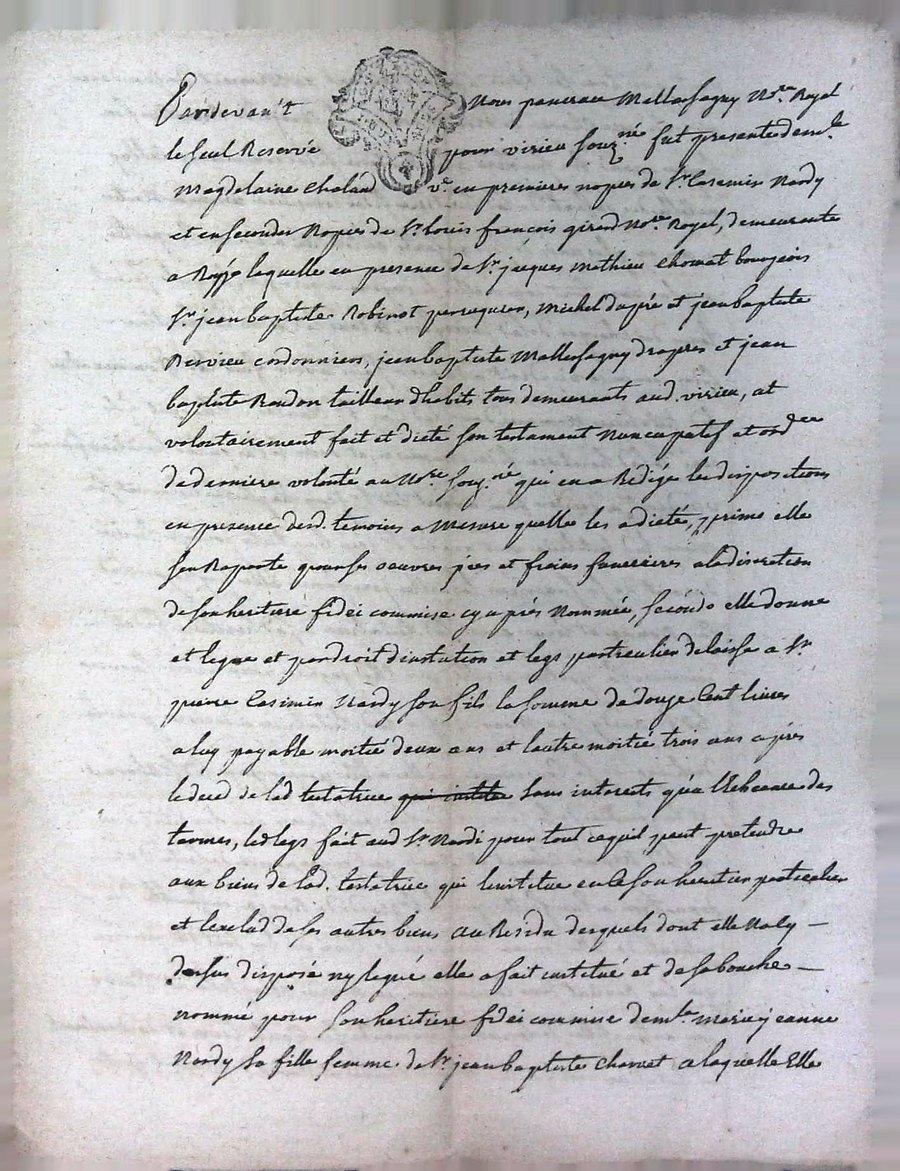 Pardevan't Nous pancrace Mallassagny No.re Royal
le seul Reservé pour virieu souz.né fut presente dem.le
Magdelaine Choland v.e en premieres nopces de S.r Casemir Nardy
et en secondes Nopces de S.r louis françois girard No.re Royal, demeurante
a laquelle en presence de S.r jacques Mathieu Chomat bourgeois
S.r jean baptiste Robinot peruquier, Michel dupré et jean baptiste
Bervieu cordonniers, jean baptiste Mallassagny drapier et jean
baptiste Roudon tailleur d'habits tous demeurants aud. virieu, at
volontairement fait et dicté son testament Nuncupatif et ord.ce
de derniere volonté au No.re souz.né qui en a Redigé les dispositions
en presence desd. temoins a Mesure quelle les a dictée, primo elle
sen Raporte pour ses oeuvres pies et fraix funeraires a la discretion
de son heritiere fidei commise cy après Nommée, secondo elle donne
et legue et par droit dinstitution et legs particulier delaisse a S.r
pierre Casimir Nardy son fils la somme de douze Cent livres
a luy payable moitié deux ans et lautre moitié trois ans après
le deced de lad testatrice sans interets qu'a l'Echeance des
termes, led legs fait aud S.r Nardi pour tout cequil peut pretendre
aux biens de lad. testatrice qui linstitue en ce son heritier particulier
et lexclud de ses autres biens au Residu desquels dont elle Na cy
dessus disposé ny legué elle a fait institué et de sa bouche
nommé pour son heritiere fidei commise dem.lle marie jeanne
Nardy sa fille femme de S.r jean baptiste Chomat a laquelle Elle